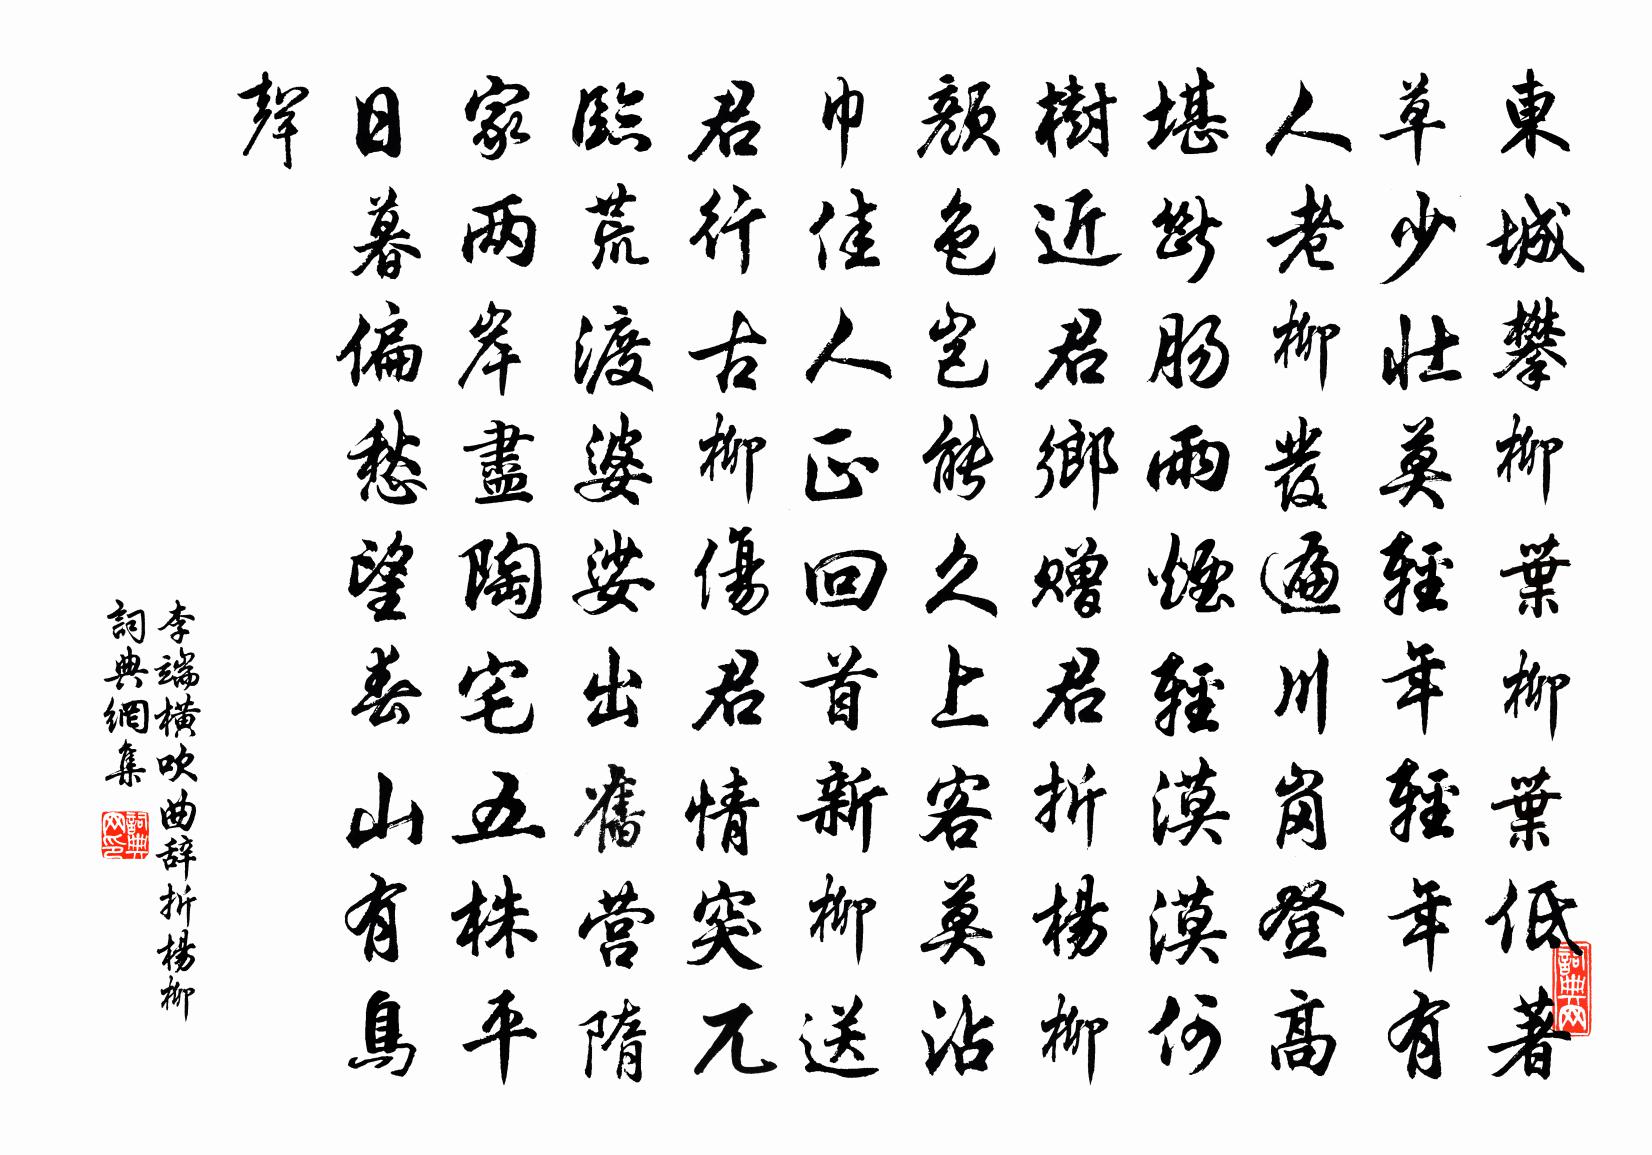 東城攀柳葉柳葉低著
草少壯莫輕年輕年有
人老柳發遍川岡登高
堪斷腸雨煙輕漠漠何
樹近君鄉贈君折楊柳
顏色豈能久上客莫沾
巾佳人正回首新柳送
君行古柳傷君情突兀
臨荒渡婆娑出舊營隋
家兩岸盡陶宅五株平
日暮偏愁望春山有鳥
聲
李端橫吹曲辭折楊柳
詞典網集
詞典網
詞典网印